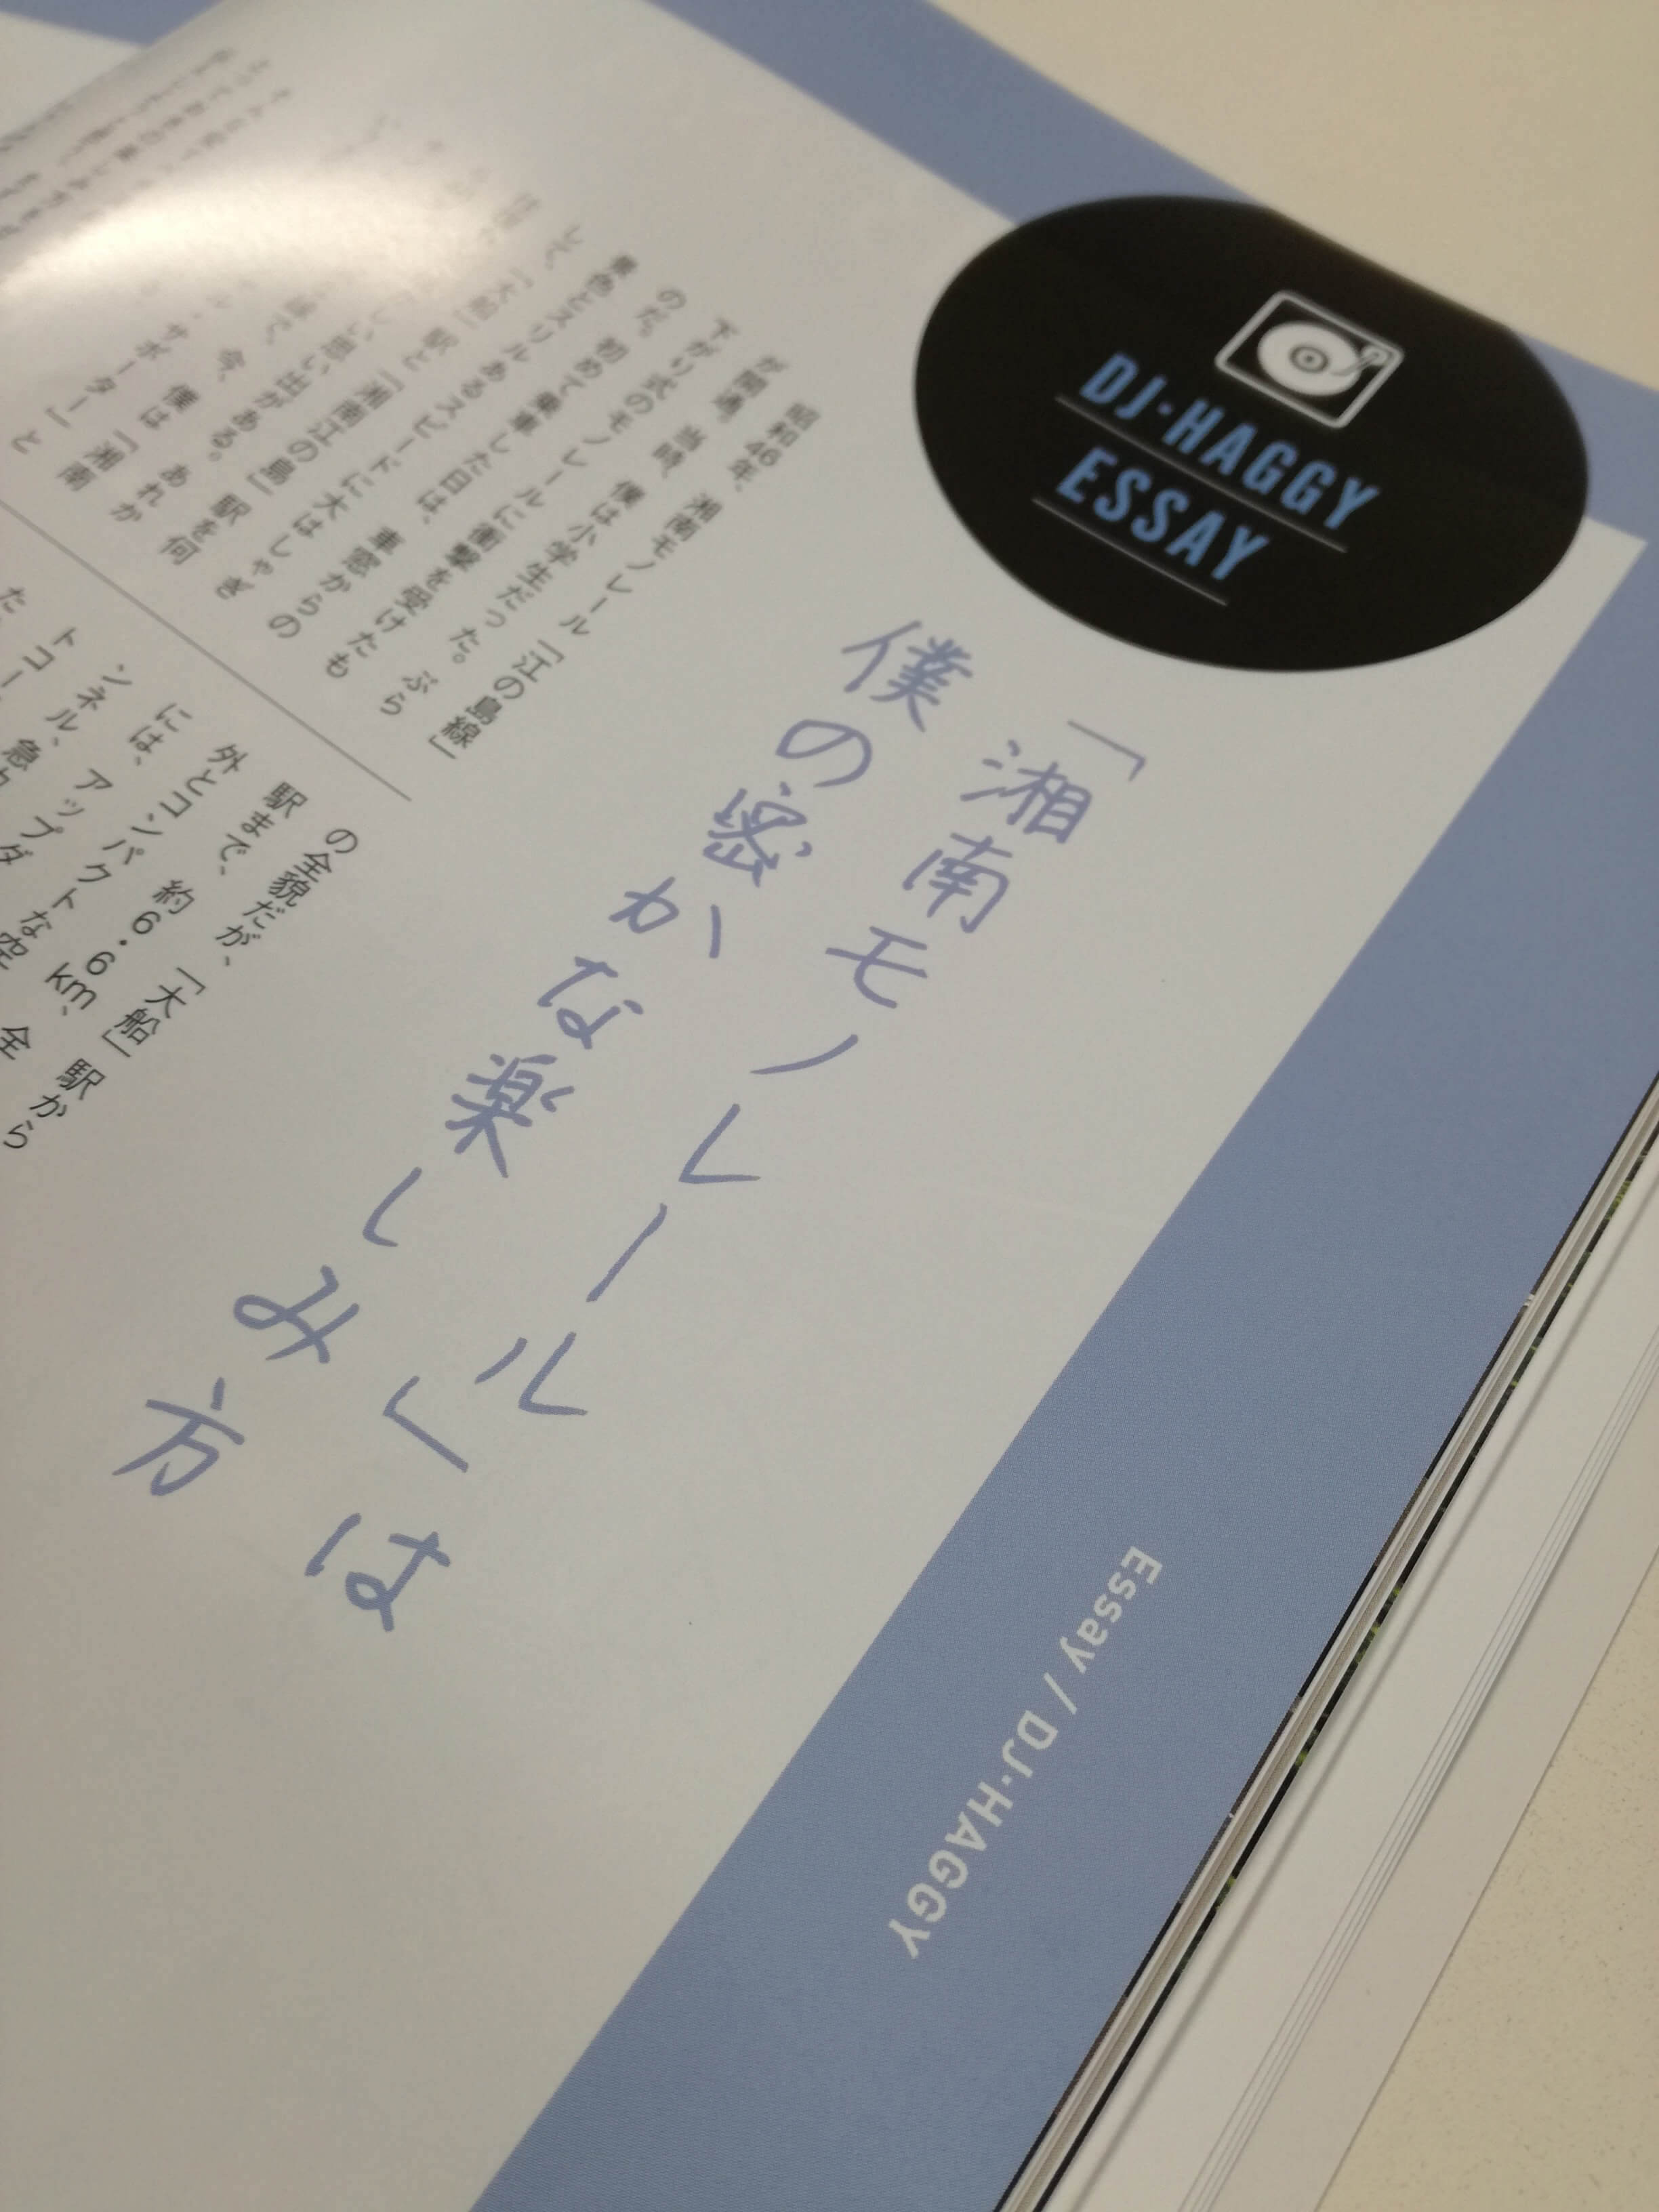 DJ·HAGGY
ESSAY
「湘南モノレール」は
僕の密かな楽しみ方
昭和46年、湘南モノレール「江の島線」
が開通。当時、僕は小学生だった。ぶら
下がり式のモノレールに衝撃を受けたも
のだ。初めて乗車した日は、車窓からの
景色とスリルあるスピードに大はしゃぎ
して、「大船」駅と「湘南江の島」駅を何
しい思い出がある。あれか
今、僕は「湘南
ル・サポーター」と
の全貌だが、「大船」駅から
駅まで、約6.6km、全
外とコンパクトな空
には、アップダ
ンネル、急
トコー
た
Essay / DJ·HAGGY